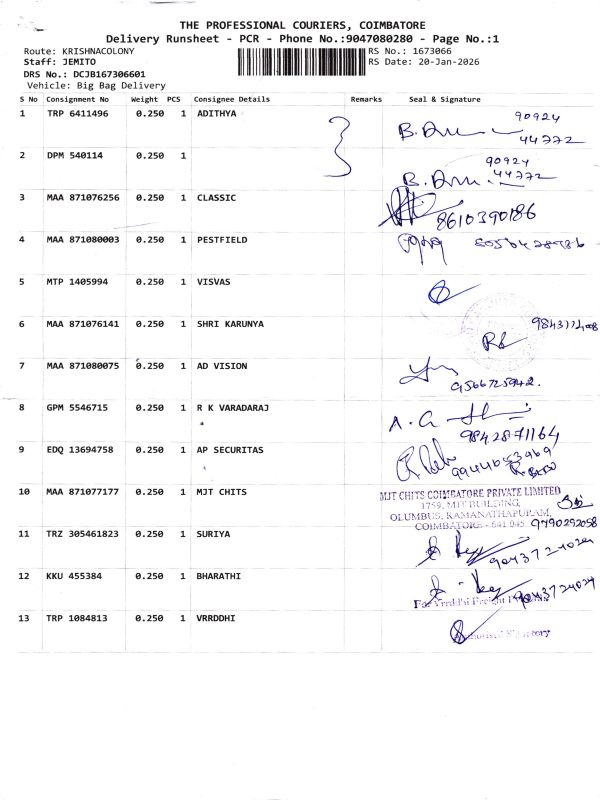 THE PROFESSIONAL COURIERS, COIMBATORE
Delivery Runsheet - PCR - Phone No.:9047080280 - Page No.:1
Route: KRISHNACOLONY
RS No.: 1673066
Staff: JEMITO
RS Date: 20-Jan-2026
DRS No.: DCJB167306601
Vehicle: Big Bag Delivery
S No Consignment No Weight PCS Consignee Details Remarks Seal & Signature
1 TRP 6411496 0.250 1 ADITHYA 90924
44772
2 DPM 540114 0.250 1 90924
44772
3 MAA 871076256 0.250 1 CLASSIC 8610390186
4 MAA 871080003 0.250 1 PESTFIELD
5 MTP 1405994 0.250 1 VISVAS
6 MAA 871076141 0.250 1 SHRI KARUNYA
7 MAA 871080075 0.250 1 AD VISION
8 GPM 5546715 0.250 1 R K VARADARAJ
9842871164
9 EDQ 13694758 0.250 1 AP SECURITAS
10 MAA 871077177 0.250 1 MJT CHITS MJT CHITS COIMBATORE PRIVATE LIMITED
1759, MJT BUILDING,
OLUMBUS, RAMANATHAPURAM,
COIMBATORE - 641 045 9790292058
11 TRZ 305461823 0.250 1 SURIYA 9043724024
12 KKU 455384 0.250 1 BHARATHI 9043724024
For Vrrddhi Freight
13 TRP 1084813 0.250 1 VRRDDHI
Authorised Signatory